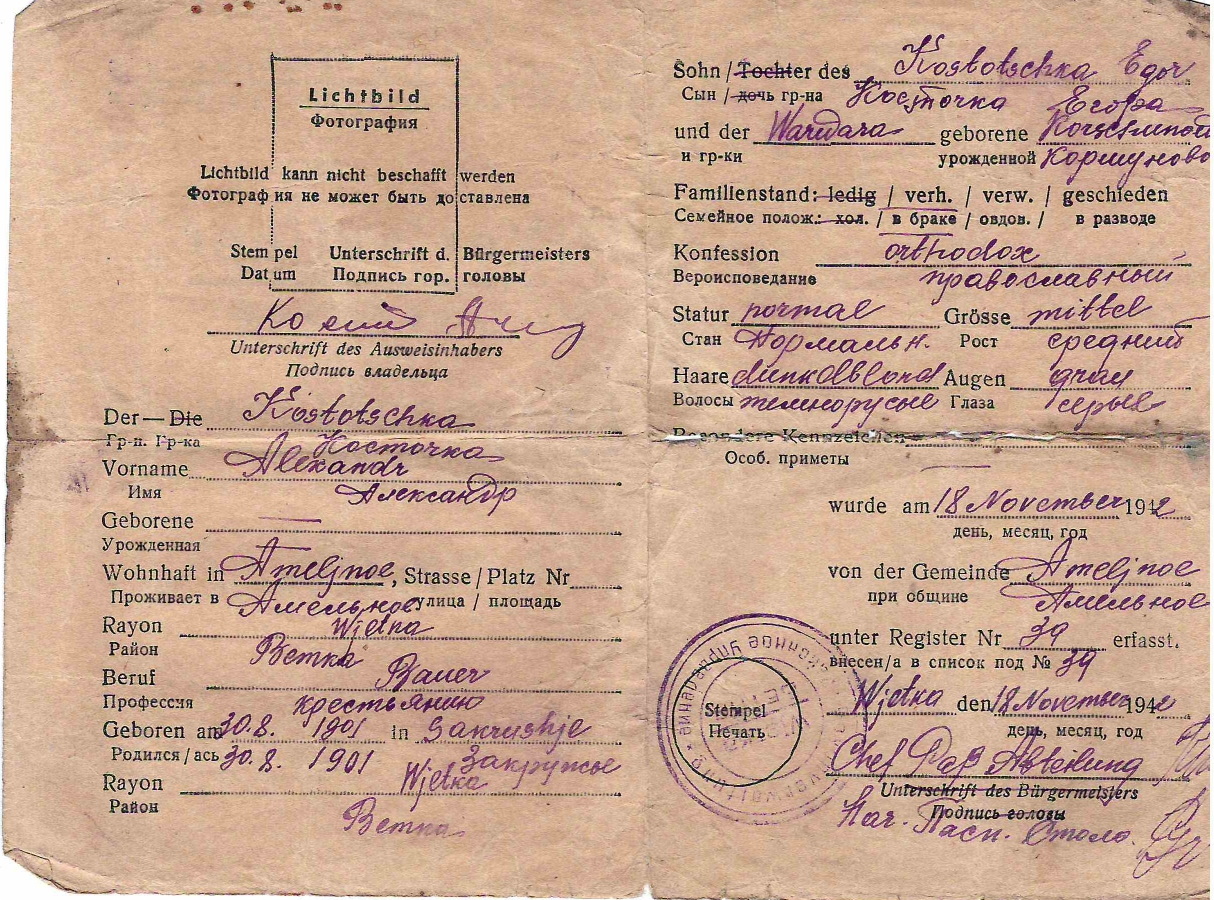 Lichtbild
Фотография
Lichtbild kann nicht beschafft werden
Фотография не может быть доставлена
Stempel Unterschrift d. Bürgermeisters
Datum Подпись гор. головы
Unterschrift des Ausweisinhabers
Подпись владельца
Der — Die Kostotschka
Гр-н. Гр-ка Косточка
Vorname Alexandr
Имя Александр
Geborene —
Урожденная
Wohnhaft in Ameljnoe, Strasse / Platz Nr
Проживает в Амельное улица / площадь
Rayon Wjetka
Район Ветка
Beruf Bauer
Профессия крестьянин
Geboren am 30.8. 1901 in Sakrushje
Родился/ась 30.8. 1901 Закружье
Rayon Wjetka
Район Ветка
Sohn / Tochter des Kostotschka Egor
Сын / дочь гр-на Косточка Егора
und der Warwara geborene
и гр-ки урожденной
Familienstand: ledig / verh. / verw. / geschieden
Семейное полож.: хол. / в браке / овдов. / в разводе
Konfession orthodox
Вероисповедание православный
Statur normal Grösse mittel
Стан Нормальн. Рост средний
Haare dunkelblond Augen grau
Волосы темнорусые Глаза серые
Besondere Kennzeichen
Особ. приметы —
wurde am 18 November 1942
день, месяц, год
von der Gemeinde Ameljnoe
при общине Амельное
unter Register Nr 39 erfasst.
внесен/а в список под № 39
Wjetka den 18 November 1942
день, месяц, год
Stempel
Печать
Chef Paß Abteilung
Unterschrift des Bürgermeisters
Подпись головы
Нач. Пасп. Стола.